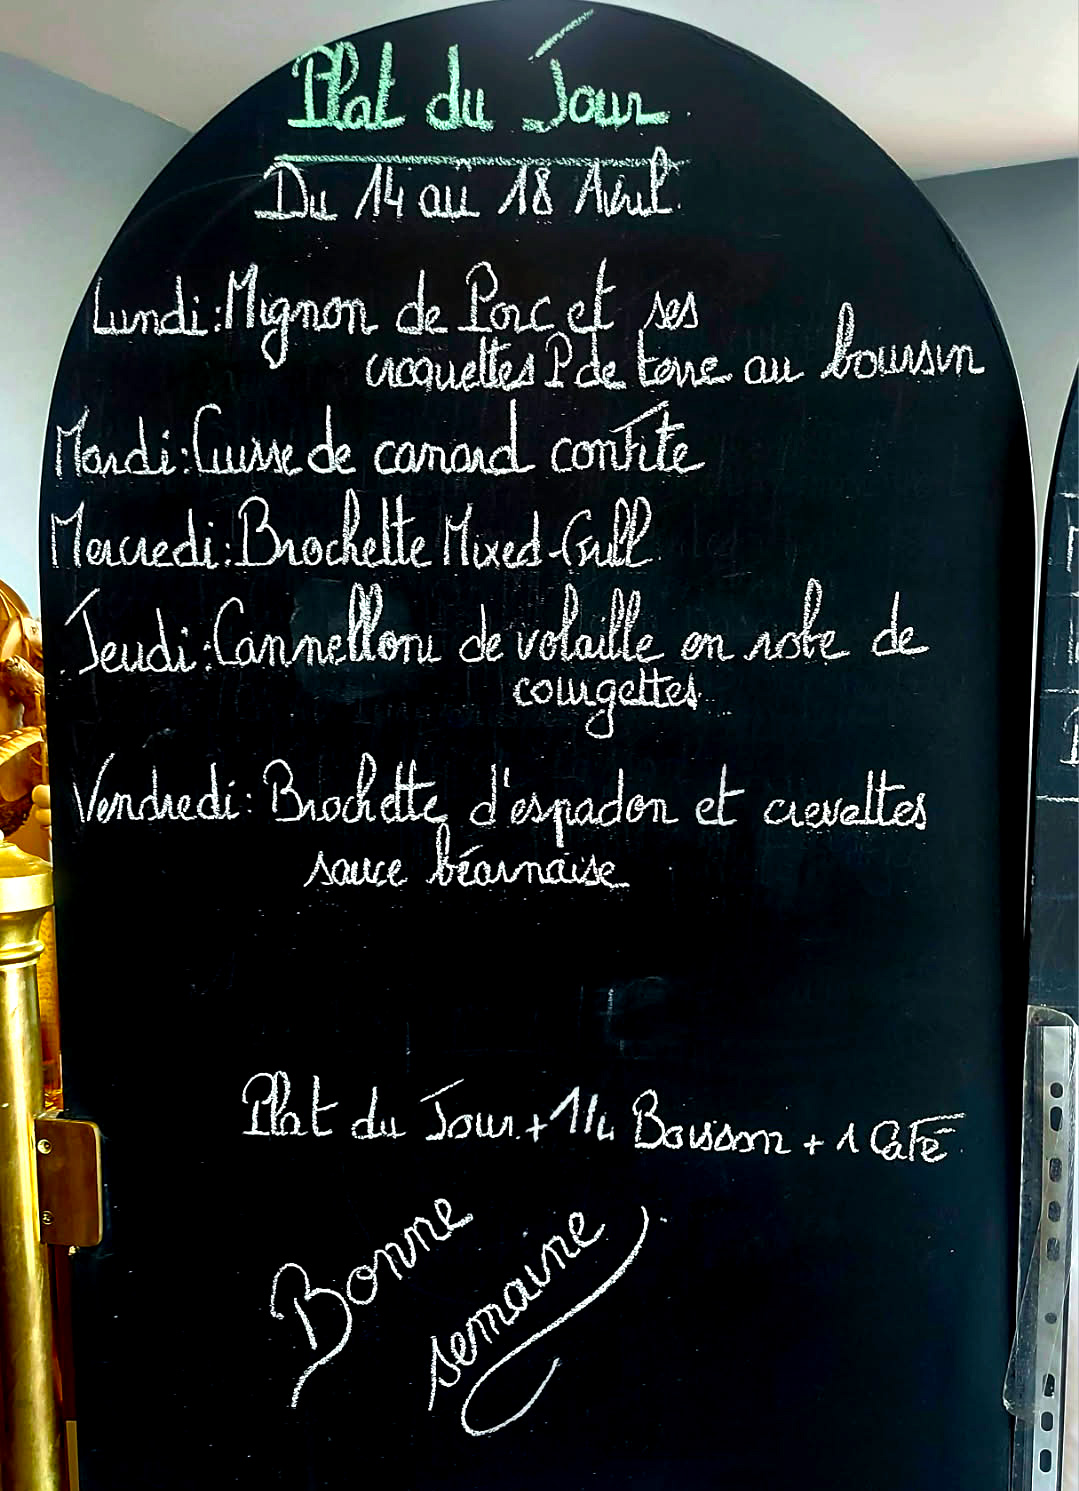 Plat du Jour
Du 14 au 18 Avril
Lundi : Mignon de Porc et ses
croquettes P de terre au boursin
Mardi : Cuisse de canard confite
Mercredi : Brochette Mixed-Grill
Jeudi : Cannelloni de volaille en robe de
courgettes
Vendredi : Brochette d'espadon et crevettes
sauce béarnaise
Plat du Jour + 1/4 Boisson + 1 Café
Bonne
semaine